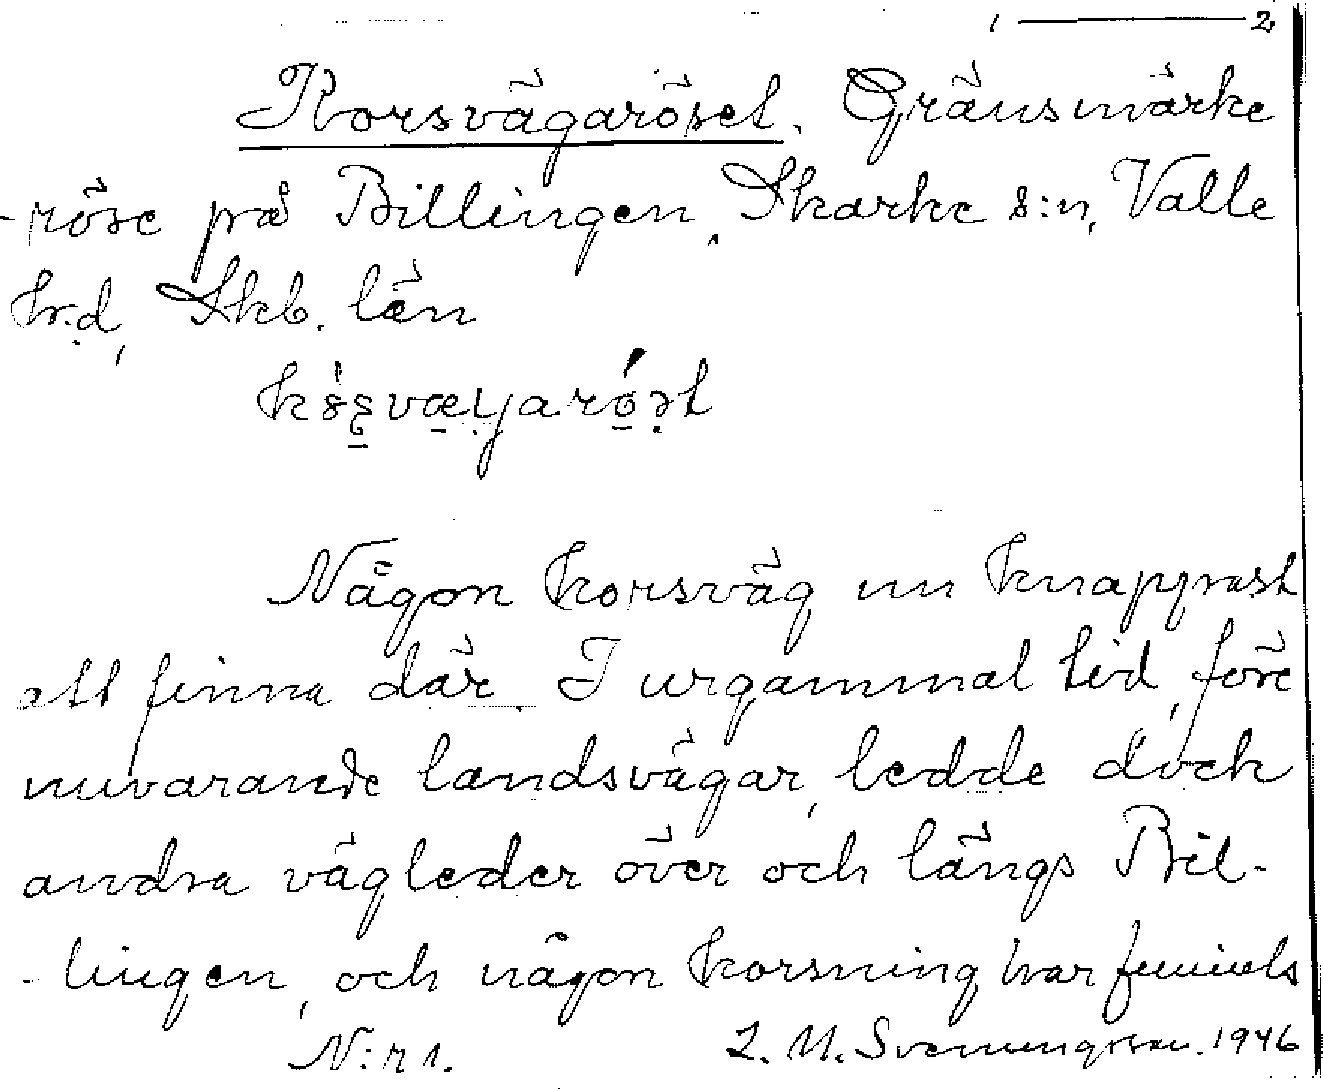 1 — 2
Korsvägaröset. Gränsmärke
-röse på Billingen, Skarke s:n, Valle
hr.d, Skb. län
Någon korsväg nu knappast
att finna där. I urgammal tid, före
nuvarande landsvägar, ledde dock
andra vägleder över och längs Bil-
-lingen, och någon korsning har funnits
N:r 1. L. M. Svenungsson. 1946